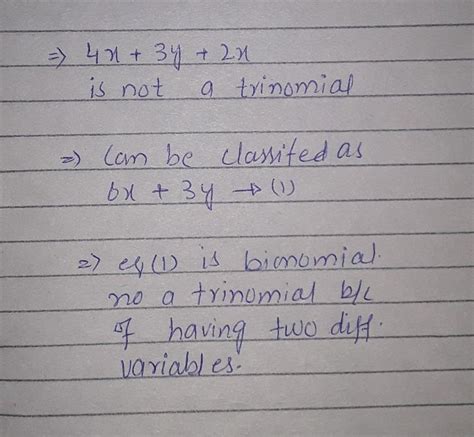 => 4x + 3y + 2x
is not a trinomial
=> Can be classifed as
6x + 3y → (1)
=> eq (1) is bionomial.
no a trinomial b/c
of having two diff.
variables.